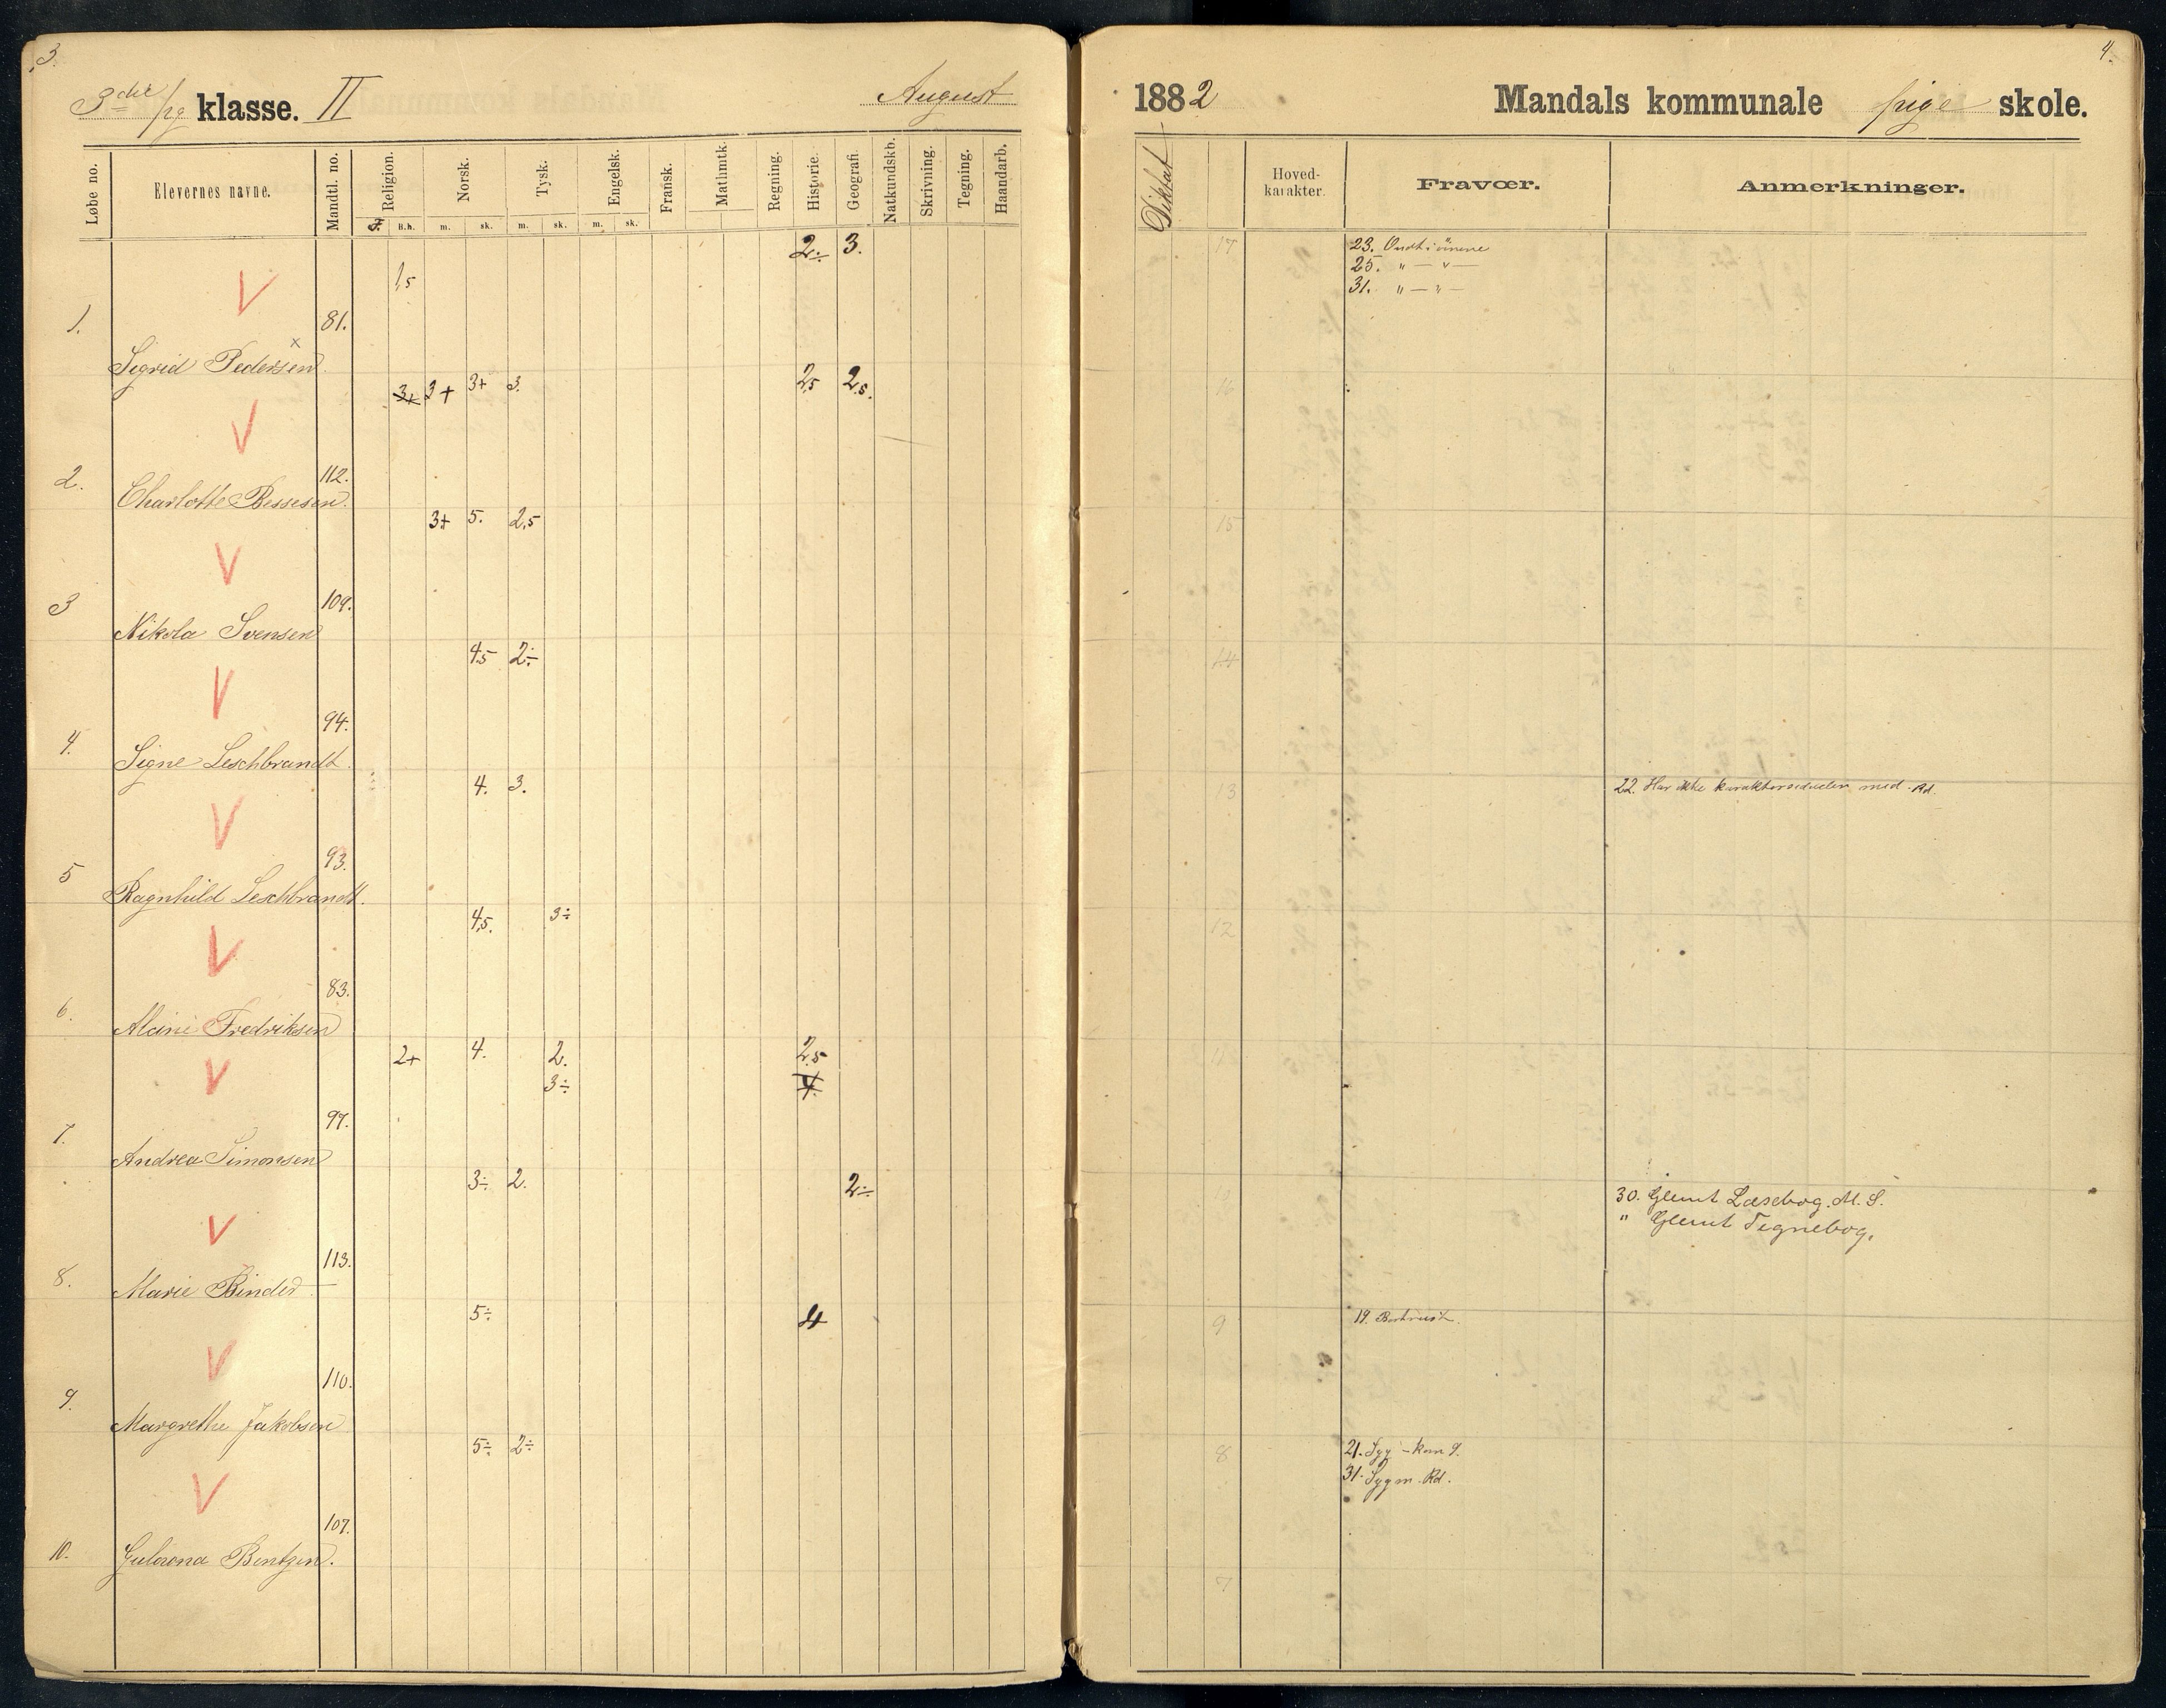 3.
3die pg klasse. II August
Løbe no. Elevernes navne. Mandtl. no. Religion. Norsk. Tysk. Engelsk. Fransk. Mathmtk. Regning. Historie. Geografi. Natkundskb. Skrivning. Tegning. Haandarb.
B.h. m. sk. m. sk. m. sk.
2÷ 3.
1,5
1. Sigrid Pedersen 81.
3+ 3+ 3+ 3. 2,5 2,5.
2. Charlotte Bessesen. 112.
3+ 5. 2,5
3 Nikola Svensen 109.
4,5 2÷
4. Signe Leschbrandt. 94.
4. 3.
5 Ragnhild Leschbrandt. 93.
4,5. 3÷
6. Alcine Fredriksen 83.
2+ 4. 2. 2,5
3÷ 4.
7. Andrea Simonsen 97.
3÷ 2. 2÷
8. Marie Binder 113.
5÷ 4
9. Margrethe Jakobsen 110.
5÷ 2÷
10. Gulovna Bentzen. 107.
4.
1882 Mandals kommunale pige skole.
Diktat Hoved-karakter. Fravær. Anmerkninger.
17 23. Ondt i örnene
25. " — " —
31. " — " —
16
15
14
13 22. Har ikke karakterseddelen med. Rd.
12
11
10 30. Glemt Læsebog. M. S.
" Glemt Tegnebog.
9 19. Bortreist.
8 21. Syg – kom 9.
31. Syg m. Rd.
7